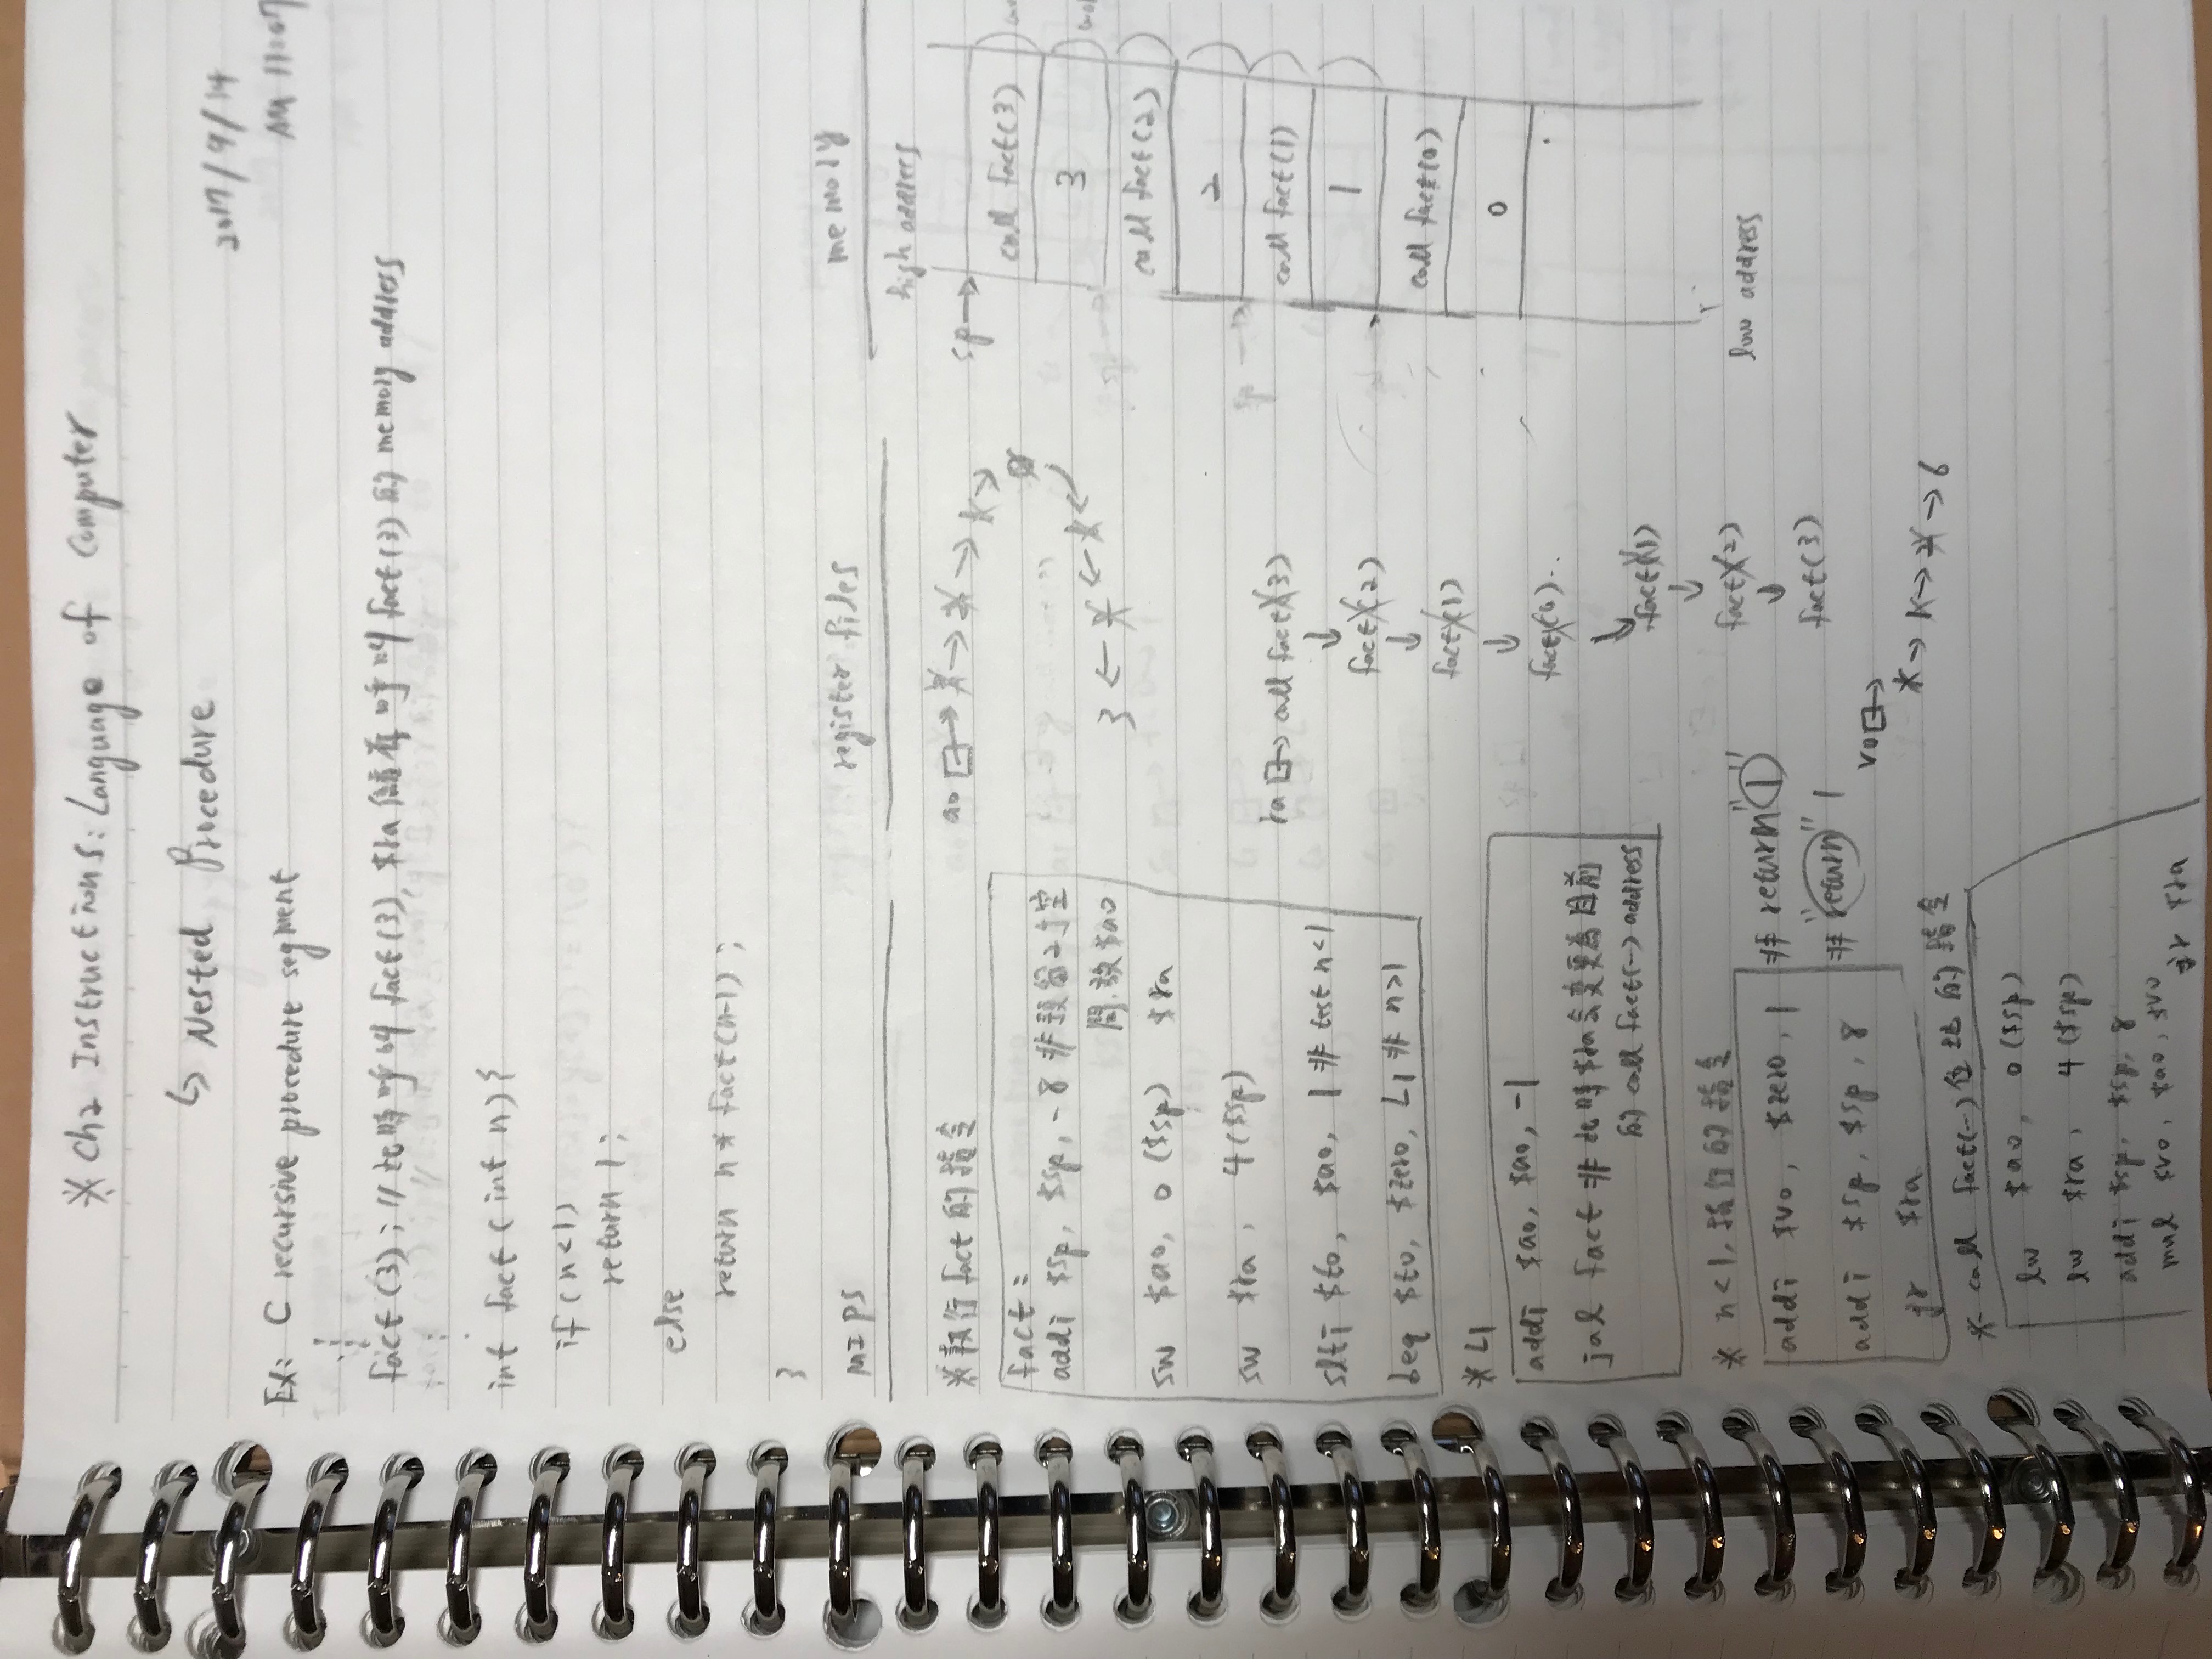 ※ Ch2 Instructions: Language of Computer
↳ Nested Procedure
2017/9/14
AM 11:07
Ex: C recursive procedure segment
⋮
fact (3); // 此時呼叫 fact(3), $ra 儲存呼叫 fact(3) 的 memory address
⋮
int fact (int n) {
if (n<1)
return 1;
else
return n * fact(n-1);
}
MIPS
※執行 fact 的指令
fact:
addi $sp, $sp, -8 # 預留2個空
間放 $a0
sw $a0, 0 ($sp) $ra
sw $ra, 4 ($sp)
slti $t0, $a0, 1 # test n<1
beq $t0, $zero, L1 # n>1
※ L1
addi $a0, $a0, -1
jal fact # 此時$ra會變更為目前
的 call fact(…) address
※ n<1, 執行的指令
addi $v0, $zero, 1 # return "1"
addi $sp, $sp, 8 # "return" 1
jr $ra
※ call fact(…) 位址的指令
lw $a0, 0 ($sp)
lw $ra, 4 ($sp)
addi $sp, $sp, 8
mul $v0, $a0, $v0
jr $ra
register files
a0 → 3 → 2 → 1 →
0
3 ← 2 ← 1 ←
ra → call fact(3)
↓
fact(2)
↓
fact(1)
↓
fact(0)..
↓
fact(1)
↓
fact(2)
↓
fact(3)
v0 →
1 → 1 → 2 → 6
memory
high address
sp →
call fact(3)
3
call fact(2)
2
call fact(1)
1
call fact(0)
0
low address